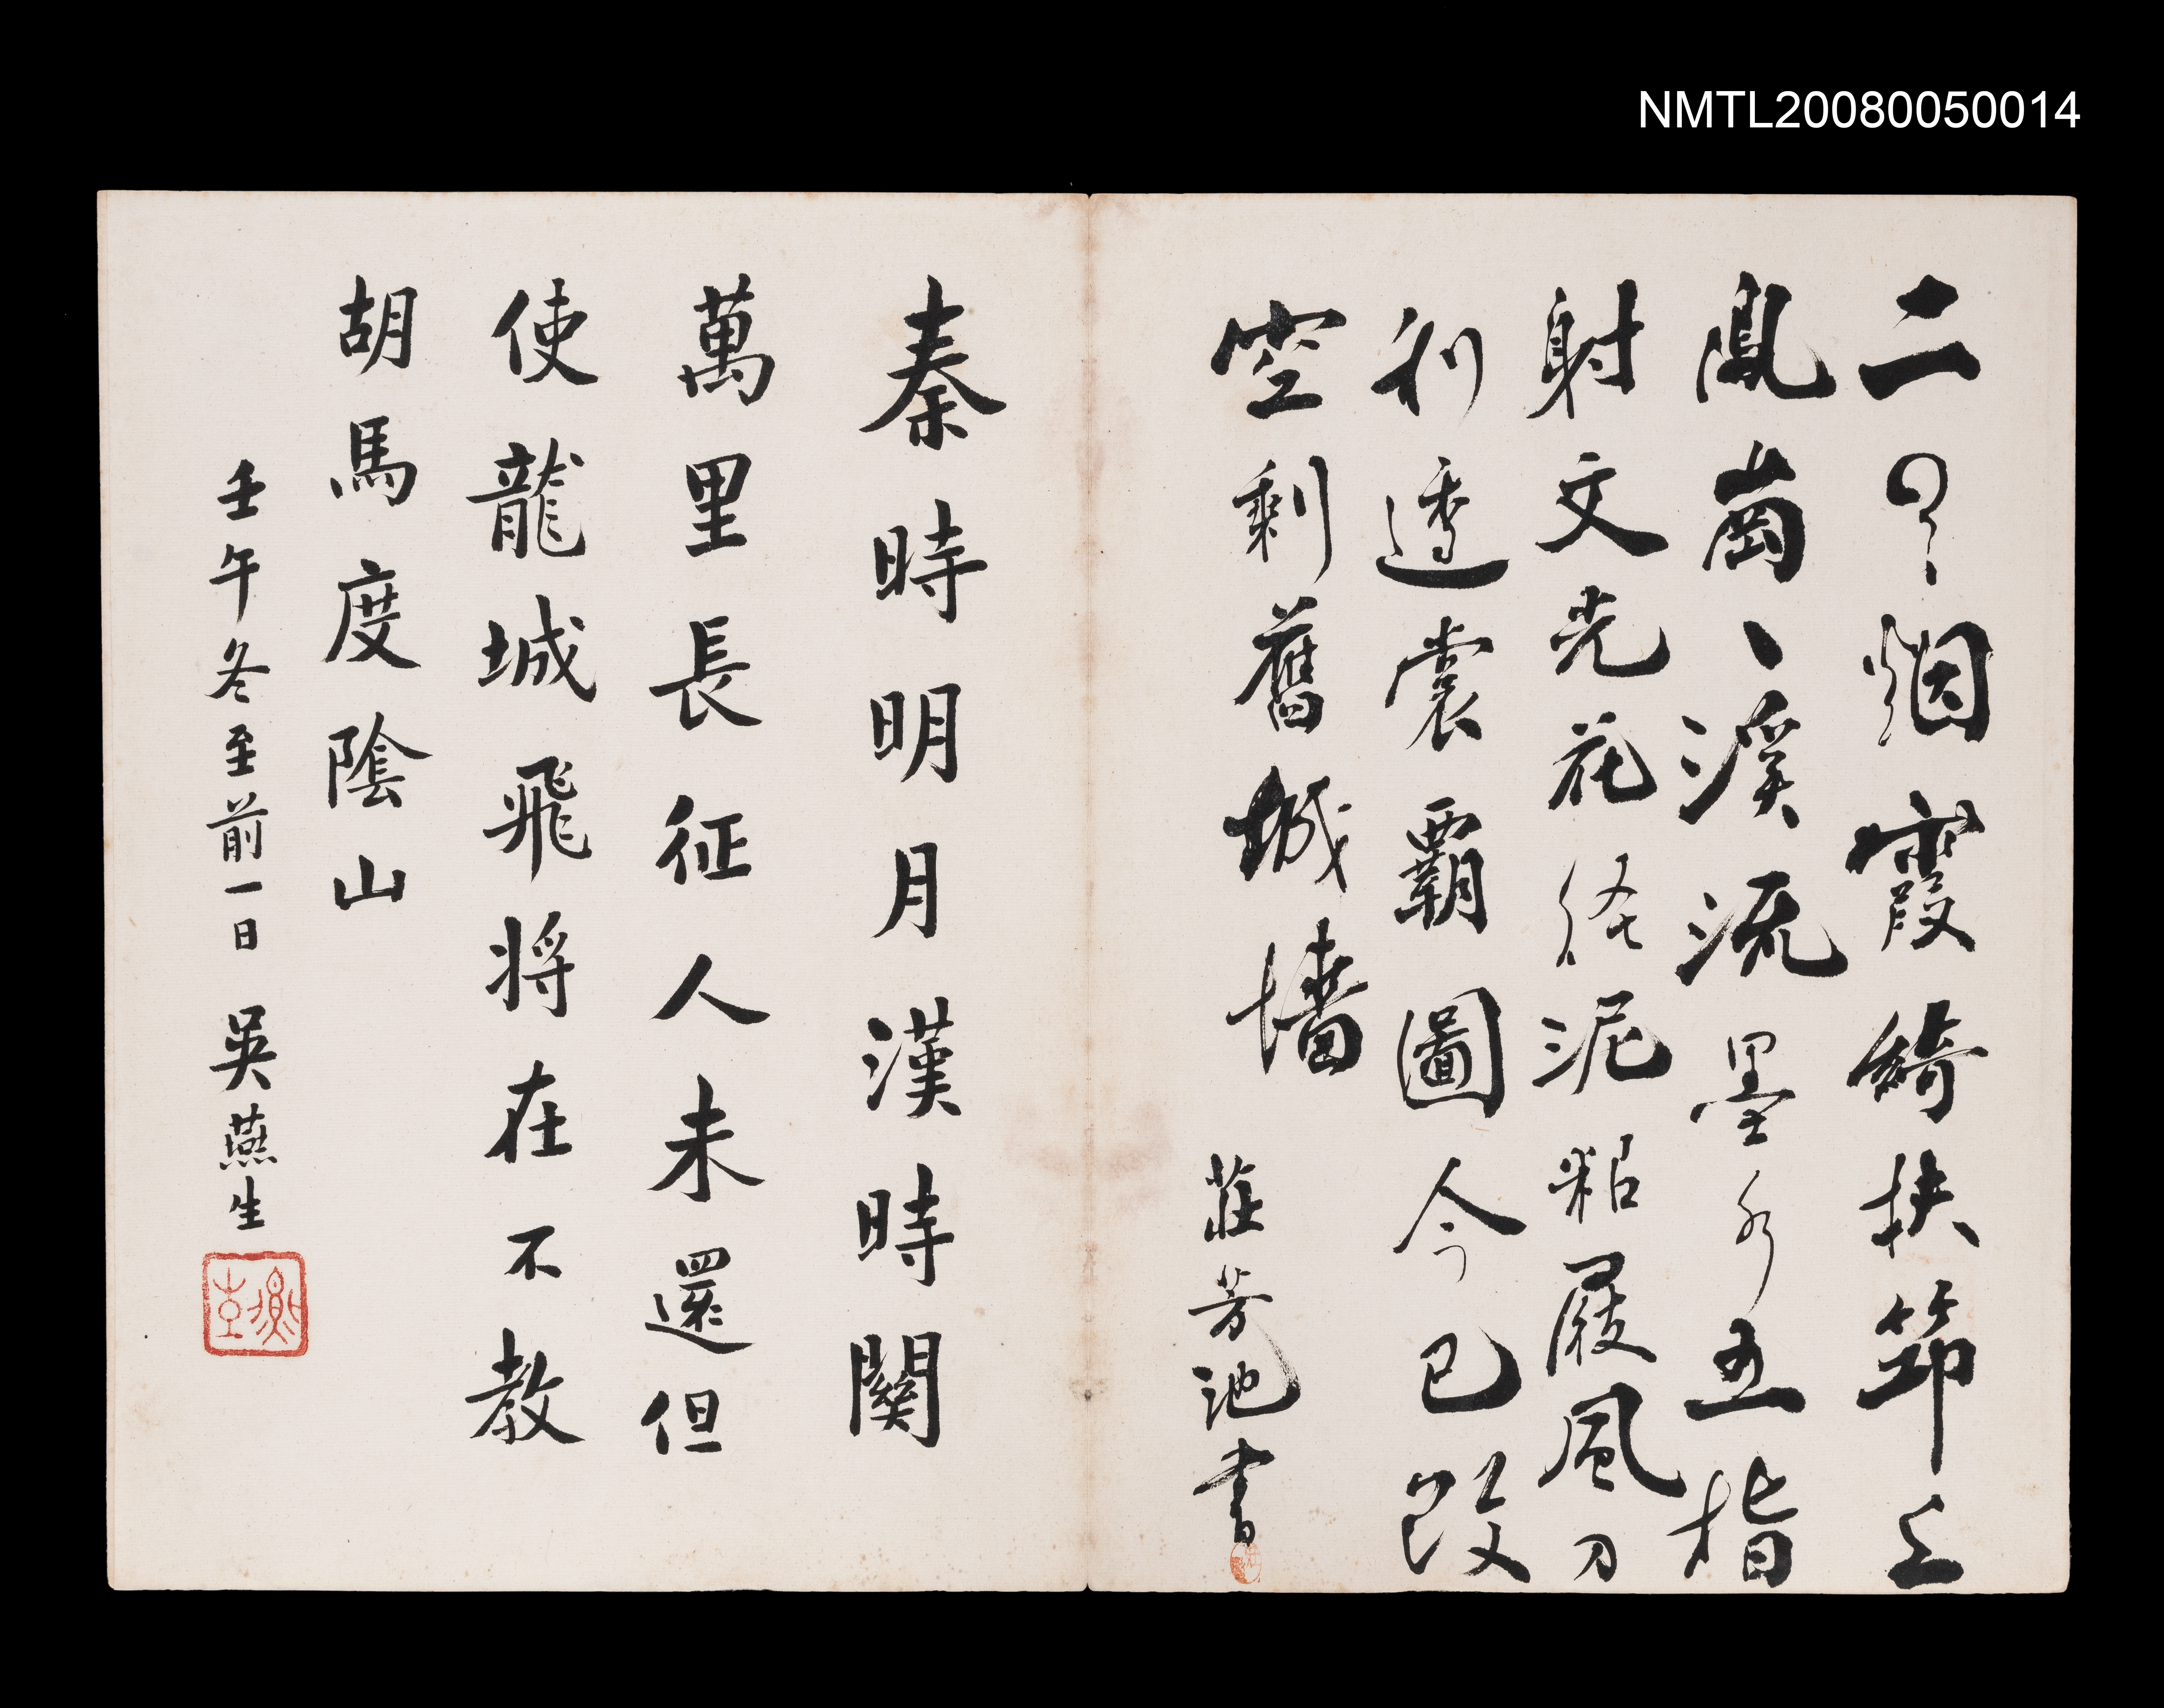 NMTL20080050014
二月烟霞綺扶筇上
鳳崗、溪流墨水五指
射文光花徑泥粘屐風刀
利透裳霸圖今已改
空剩舊城墻
莊芳池書
秦時明月漢時關
萬里長征人未還但
使龍城飛将在不教
胡馬度陰山
壬午冬至前一日 吳燕生